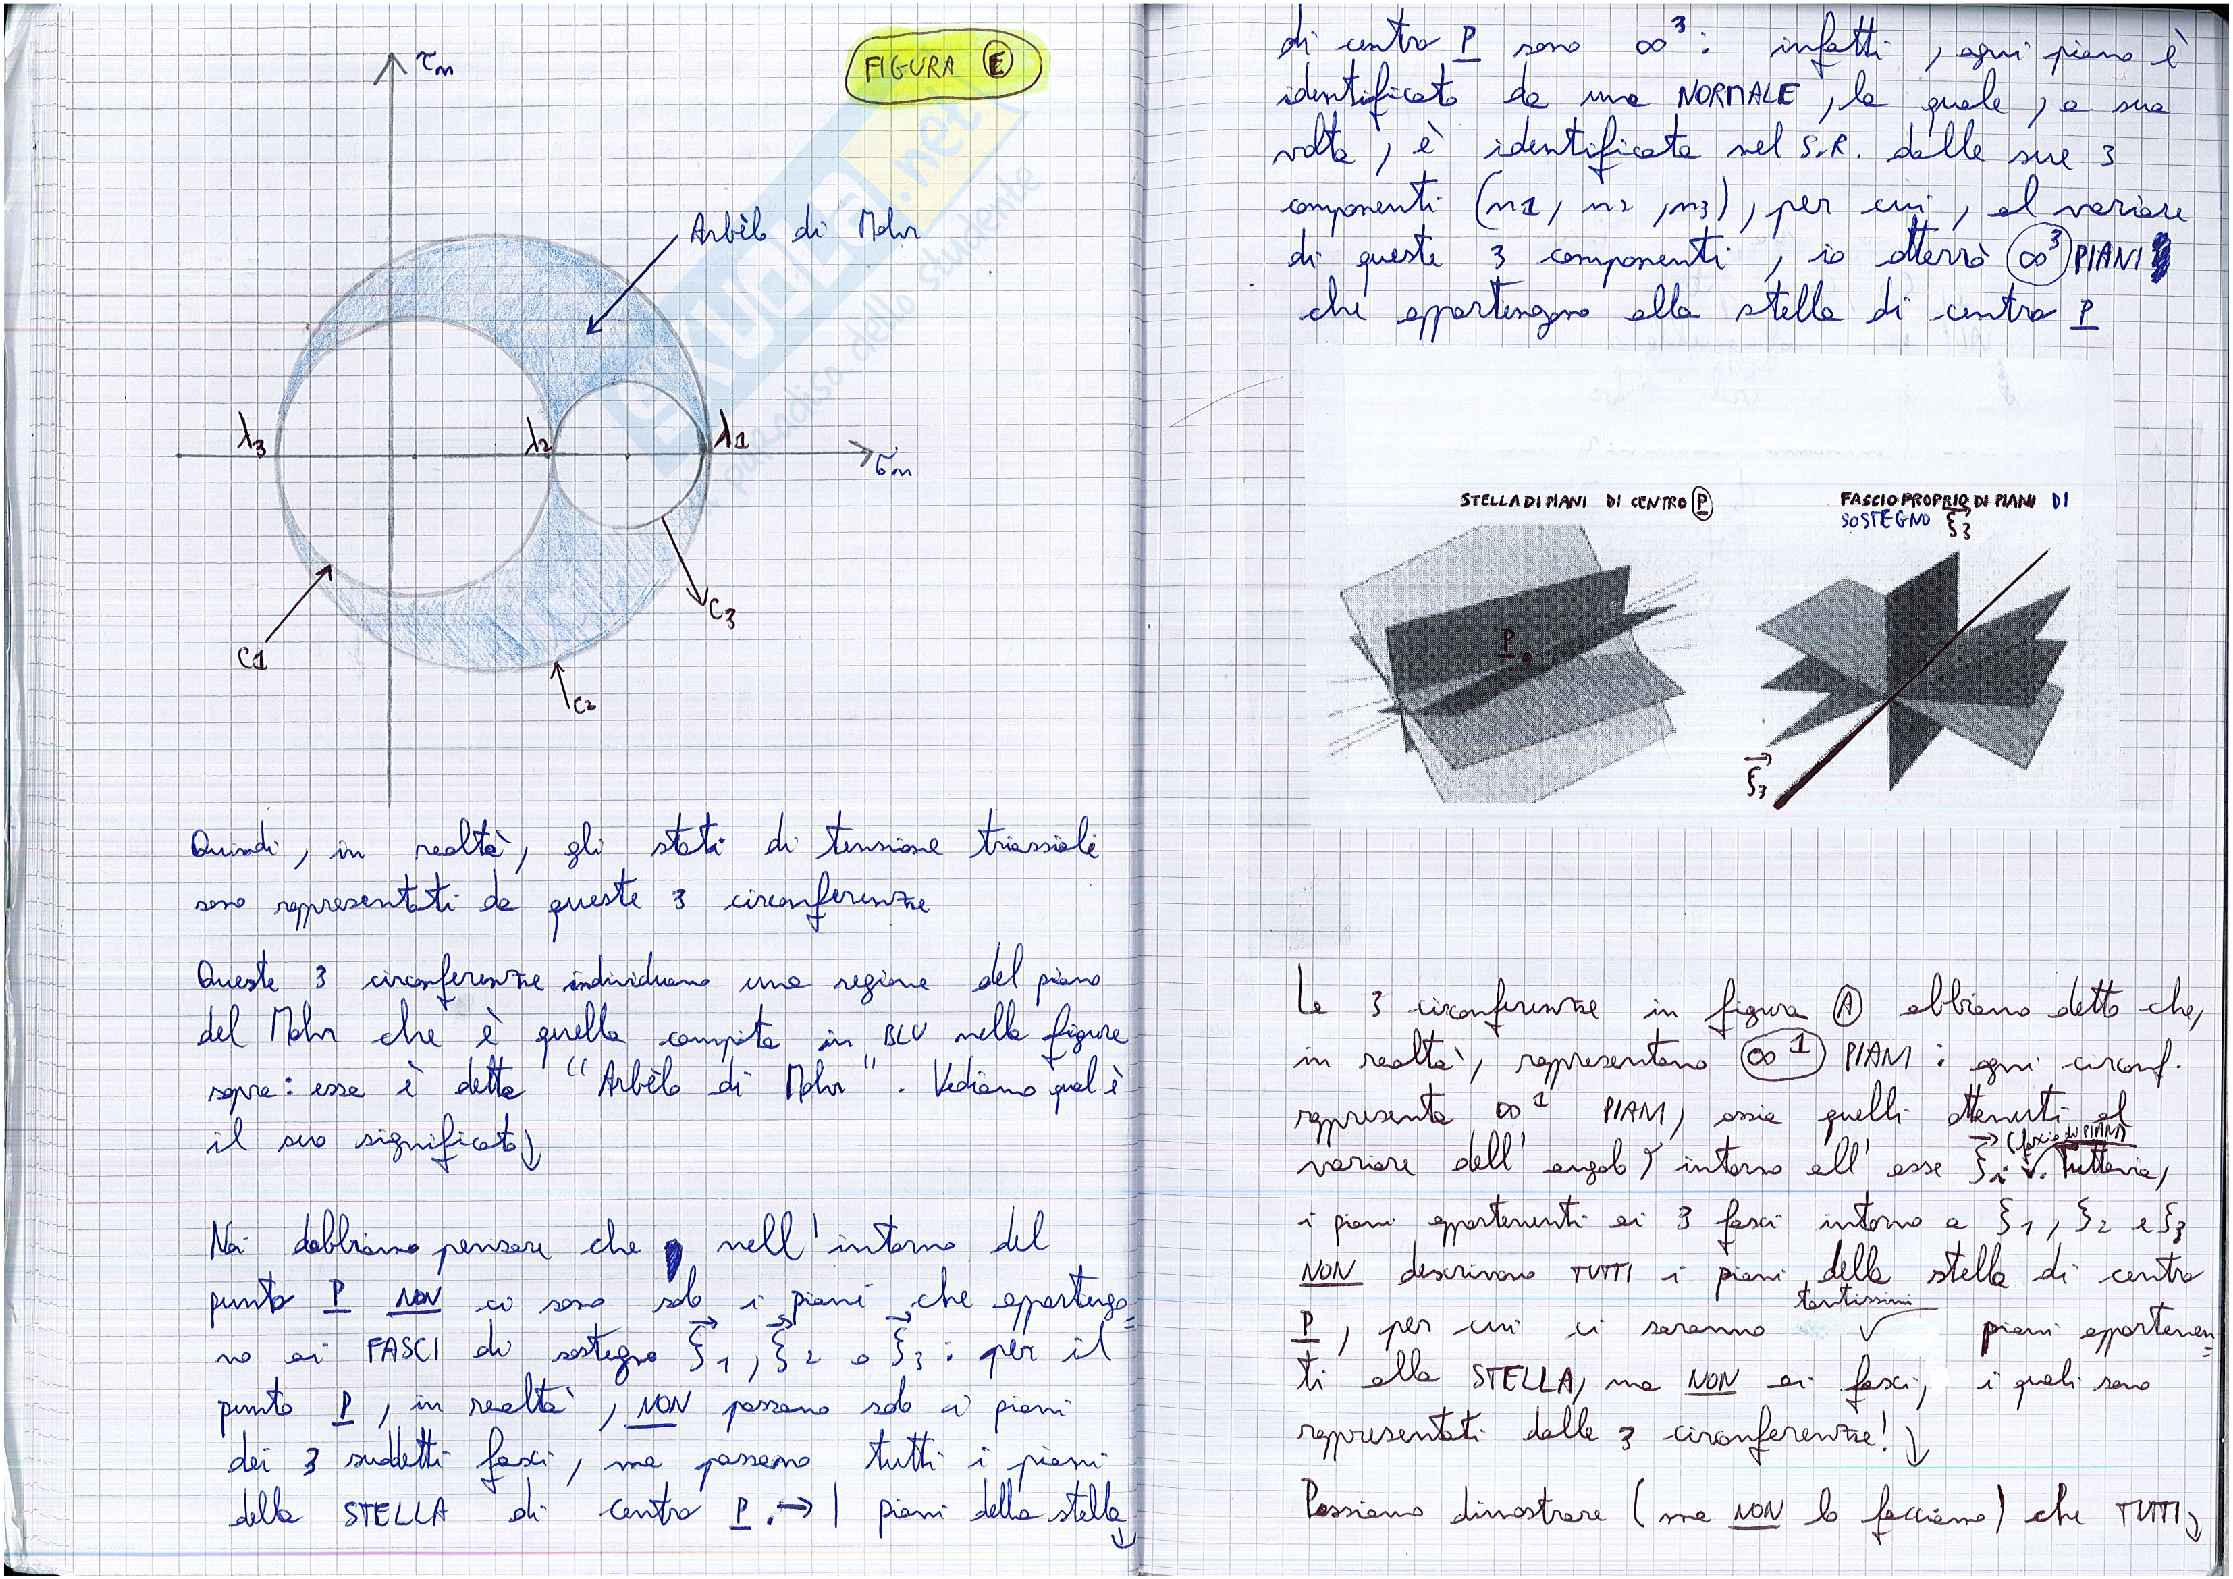 FIGURA E
τn
Arbèlo di Mohr
λ3
λ2
λ1
σn
C1
C2
C3
Quindi, in realtà, gli stati di tensione triassiali
sono rappresentati da queste 3 circonferenze
Queste 3 circonferenze individuano una regione del piano
del Mohr che è quella compita in BLU nella figura
sopra: essa è detta "Arbèlo di Mohr". Vediamo qual è
il suo significato↓
Noi dobbiamo pensare che nell'intorno del
punto P NON ci sono solo i piani che apparteng-
no ai FASCI di sostegno ξ1, ξ2 o ξ3: per il
punto P, in realtà, NON passano solo i piani
dei 3 suddetti fasci, ma passano tutti i piani
della STELLA di centro P. → I piani della stella↓
di centro P sono ∞3: infatti, ogni piano è
identificato da una NORMALE, la quale, a sua
volta, è identificata nel S.R. dalle sue 3
componenti (n1, n2, n3), per cui, al variare
di queste 3 componenti, io otterrò ∞3 PIANI
che appartengono alla stella di centro P
STELLA DI PIANI DI CENTRO P
P
FASCIO PROPRIO DI PIANI DI
SOSTEGNO ξ3
ξ3
Le 3 circonferenze in figura A abbiamo detto che,
in realtà, rappresentano ∞1 PIANI: ogni circonf.
rappresenta ∞1 PIANI, ossia quelli ottenuti al
(fascio di PIANI)
variare dell'angolo γ intorno all'asse ξi. Tuttavia,
i piani appartenenti ai 3 fasci intorno a ξ1, ξ2 e ξ3
NON descrivono TUTTI i piani della stella di centro
tantissimi
P, per cui ci saranno piani appartenen=
ti alla STELLA, ma NON ai fasci, i quali sono
rappresentati dalle 3 circonferenze!↓
Possiamo dimostrare (ma NON lo facciamo) che TUTTI↓
SKUOLA.net
il paradiso dello studente